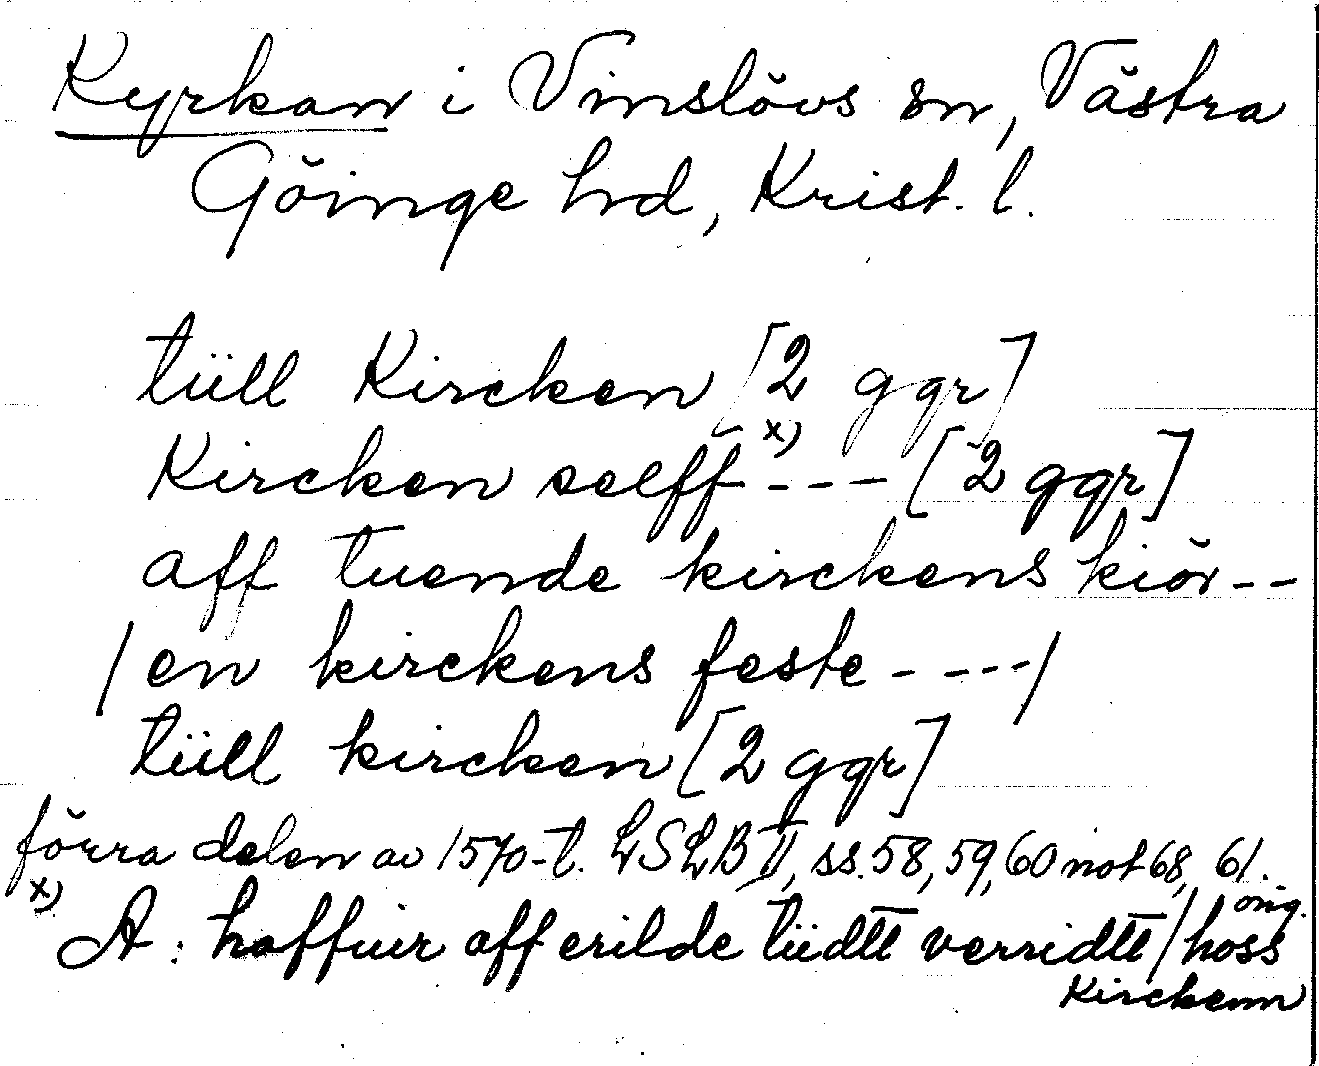 Kyrkan i Vinslövs sn, Västra
Göinge hd, Krist. l.
tüll Kircken [2 ggr]
Kircken selff x) --- [2 ggr]
aff tuende kirckens kiör --
/ en kirckens feste ---- /
tüll kircken [2 ggr]
förra delen av 1570-t. LSLB II, ss. 58, 59, 60 not 68, 61.
x) A: haffuer aff erilde tüdtt verridtt / hoss orig.
Kirckenn